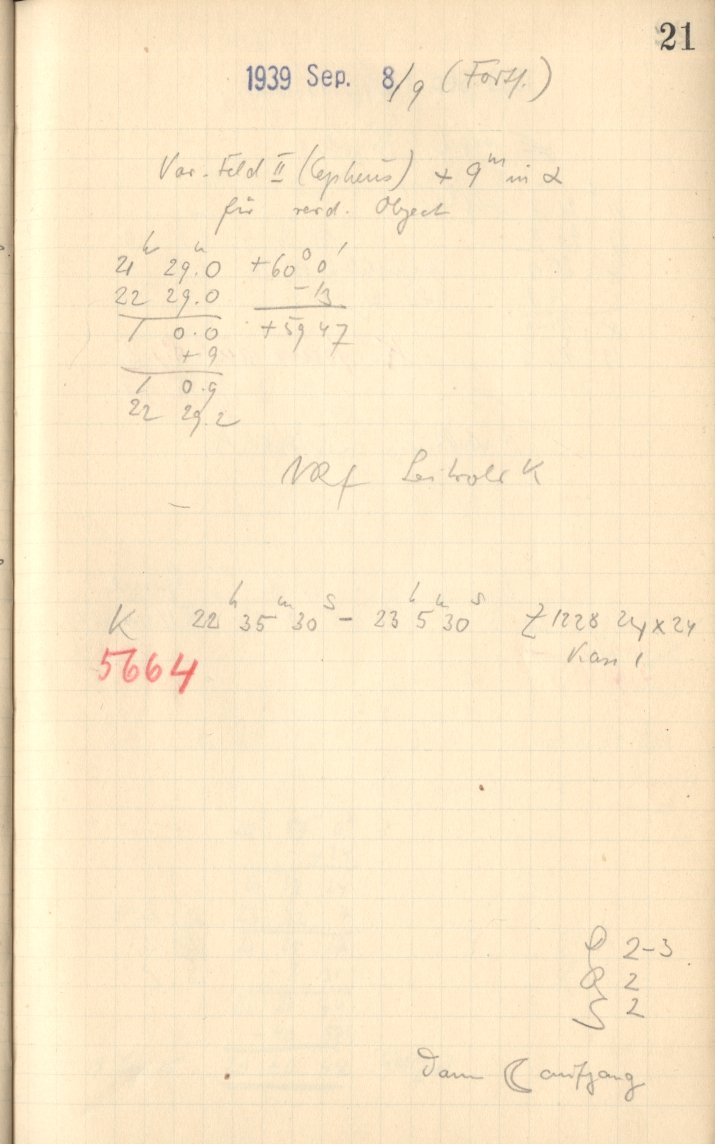 21
1939 Sep. 8/9 (Forts.)
Var. Feld II (Cepheus) + 9ᵐ in α
für Object
21ʰ 29.0 +60° 0'
22 29.0 -13
1 0.0 +59 47
+9
1 0.9
22 29.2
K
K 22ʰ 35ᵐ 30ˢ - 23ʰ 5ᵐ 30ˢ Z 1228 24x24
5664
2-3
2
S 2
Dann ☾ aufgang